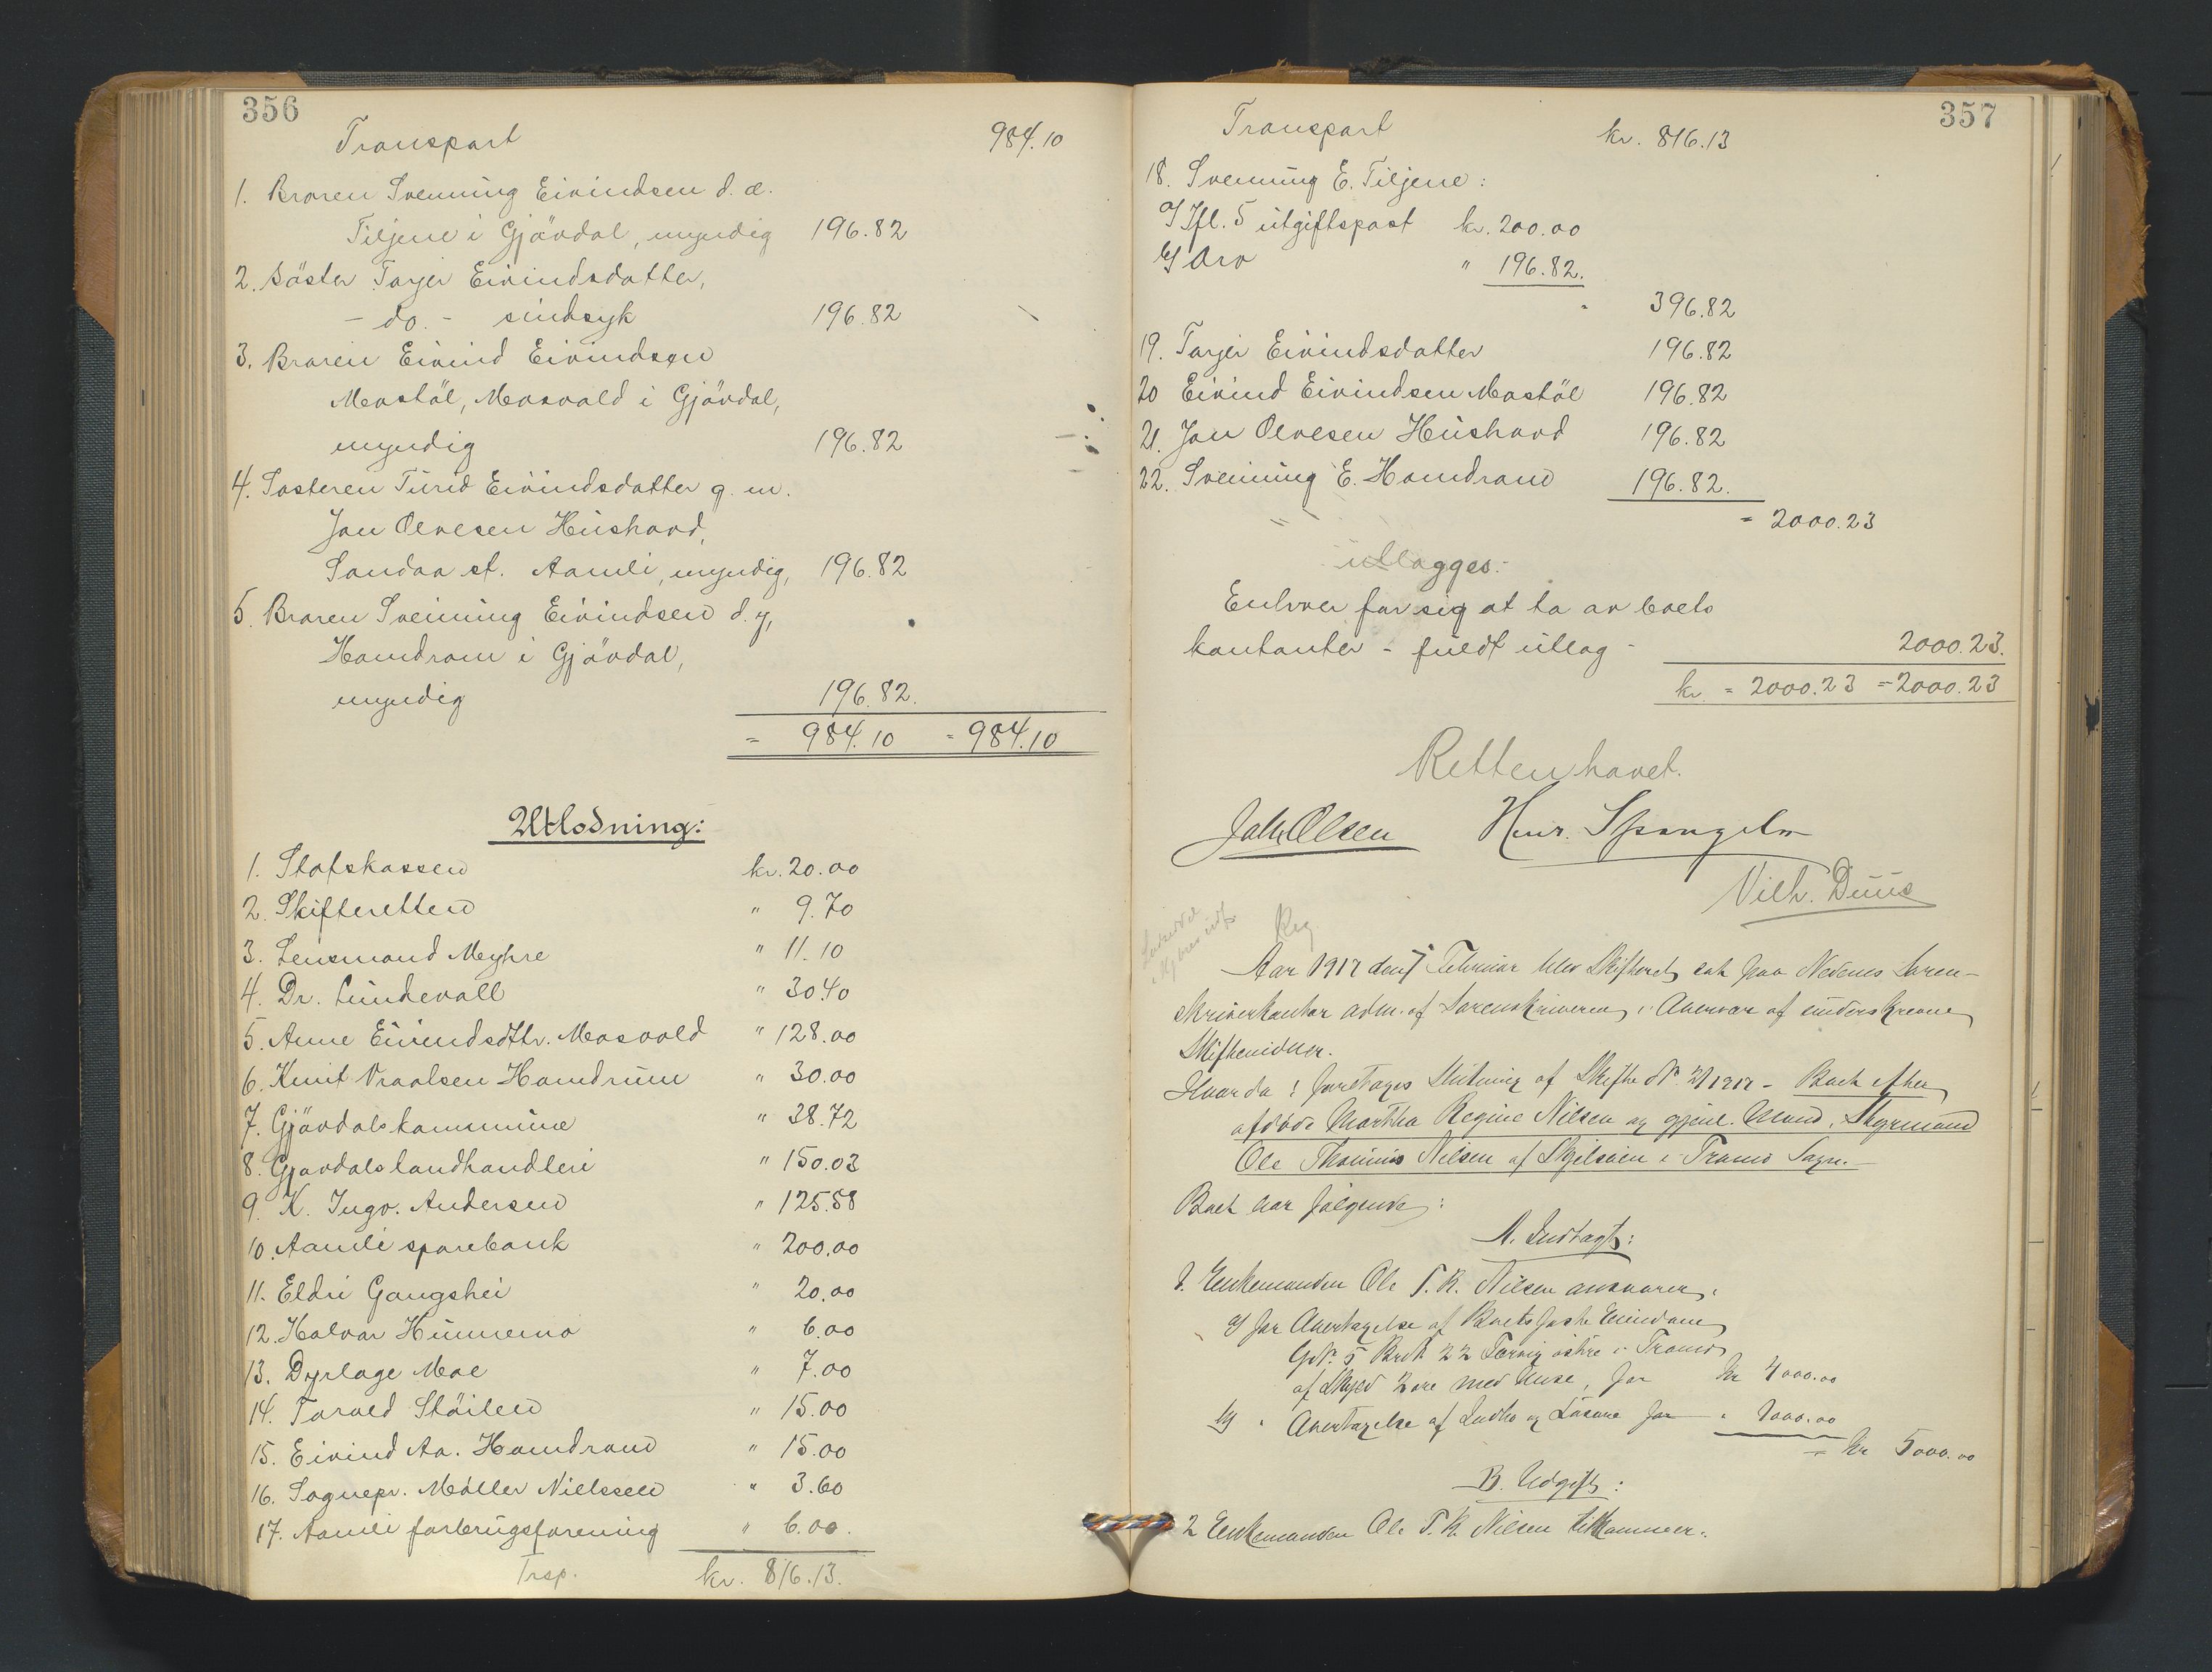 356
Transport 984.10
1. Broren Svenning Eivindsen d. æ.
Tiljene i Gjövdal, myndig 196.82
2. Söster Tarjer Eivindsdatter,
- do. - sindsyk 196.82
3. Broren Eivind Eivindsen
Mostöl, Mosvald i Gjövdal,
myndig 196.82
4. Søsteren Turid Eivindsdatter g. m.
Jon Olvesen Hushovd,
Sandaa st. Aamli, myndig, 196.82
5. Broren Sveinung Eivindsen d. y,
Homdrom i Gjövdal,
myndig 196.82.
= 984.10 = 984.10
Utlodning:
1. Statskassen kr. 20.00
2. Skifteretten " 9.70
3. Lensmand Myhre " 11.10
4. Dr. Lundevall " 30.40
5. Anne Eivindsdtr. Mosvold " 128.00
6. Knut Vraalsen Homdrum " 30.00
7. Gjövdals kommune " 38.72
8. Gjøvdals landhandleri " 150.03
9. K. Ingv. Andersen " 125.58
10. Aamli sparebank " 200.00
11. Eldri Gangshei " 20.00
12. Halvor Hunnemo " 6.00
13. Dyrlæge Moe " 7.00
14. Torvald Stöilen " 15.00
15. Eivind Aa. Homdrom " 15.00
16. Sognepr. Møller Nielssen " 3.60
17. Aamli forbrugsforening " 6.00.
Trsp. kr. 816.13.
357
Transport kr. 816.13
18. Svenning E. Tiljene:
a/ Ifl. 5 utgiftspost kr. 200.00
b/ Arv " 196.82.
396.82
19. Tarjer Eivindsdatter 196.82
20 Eivind Eivindsen Mostöl 196.82
21. Jon Olvesen Hushovd 196.82
22. Sveinung E. Homdrom 196.82.
= 2000.23
utlægges:
Enhver for sig at ta av boets
kontanter - fuldt utlag - 2000.23.
kr. = 2000.23 = 2000.23
Retten hævet.
Joh. Olsen Henr. Spangelo
Vilh. Duus
Reg.
Aar 1917 den 7 Februar blev Skifteret sat paa Nedenes Soren-
skriverkontor adm. af Sorenskriveren i Overvær af underskrevne
Skiftevidner.
Hvorda: foretoges Slutning af Skifte No. 2/1917 - Boet efter
afdøde Martha Regine Nilsen og gjenl. Mand, Styrmand
Ole Thomius Nilsen af Skjelsøen i Tromø Sogn.
Boet har følgende:
A. Indtægt:
1. Enkemanden Ole T. R. Nilsen ansvarer:
a/ for Overtagelse af Boets faste Eiendom
Gno. 5 Brno 22 Færvig østre i Tromø
af Skyld 2 øre med Huse, for Kr 4000.00
b/ " Overtagelse af Indbo og Løsøre for " 1000.00
= Kr 5000.00
B. Udgift:
2 Enkemanden Ole T. R. Nilsen tilkommer: